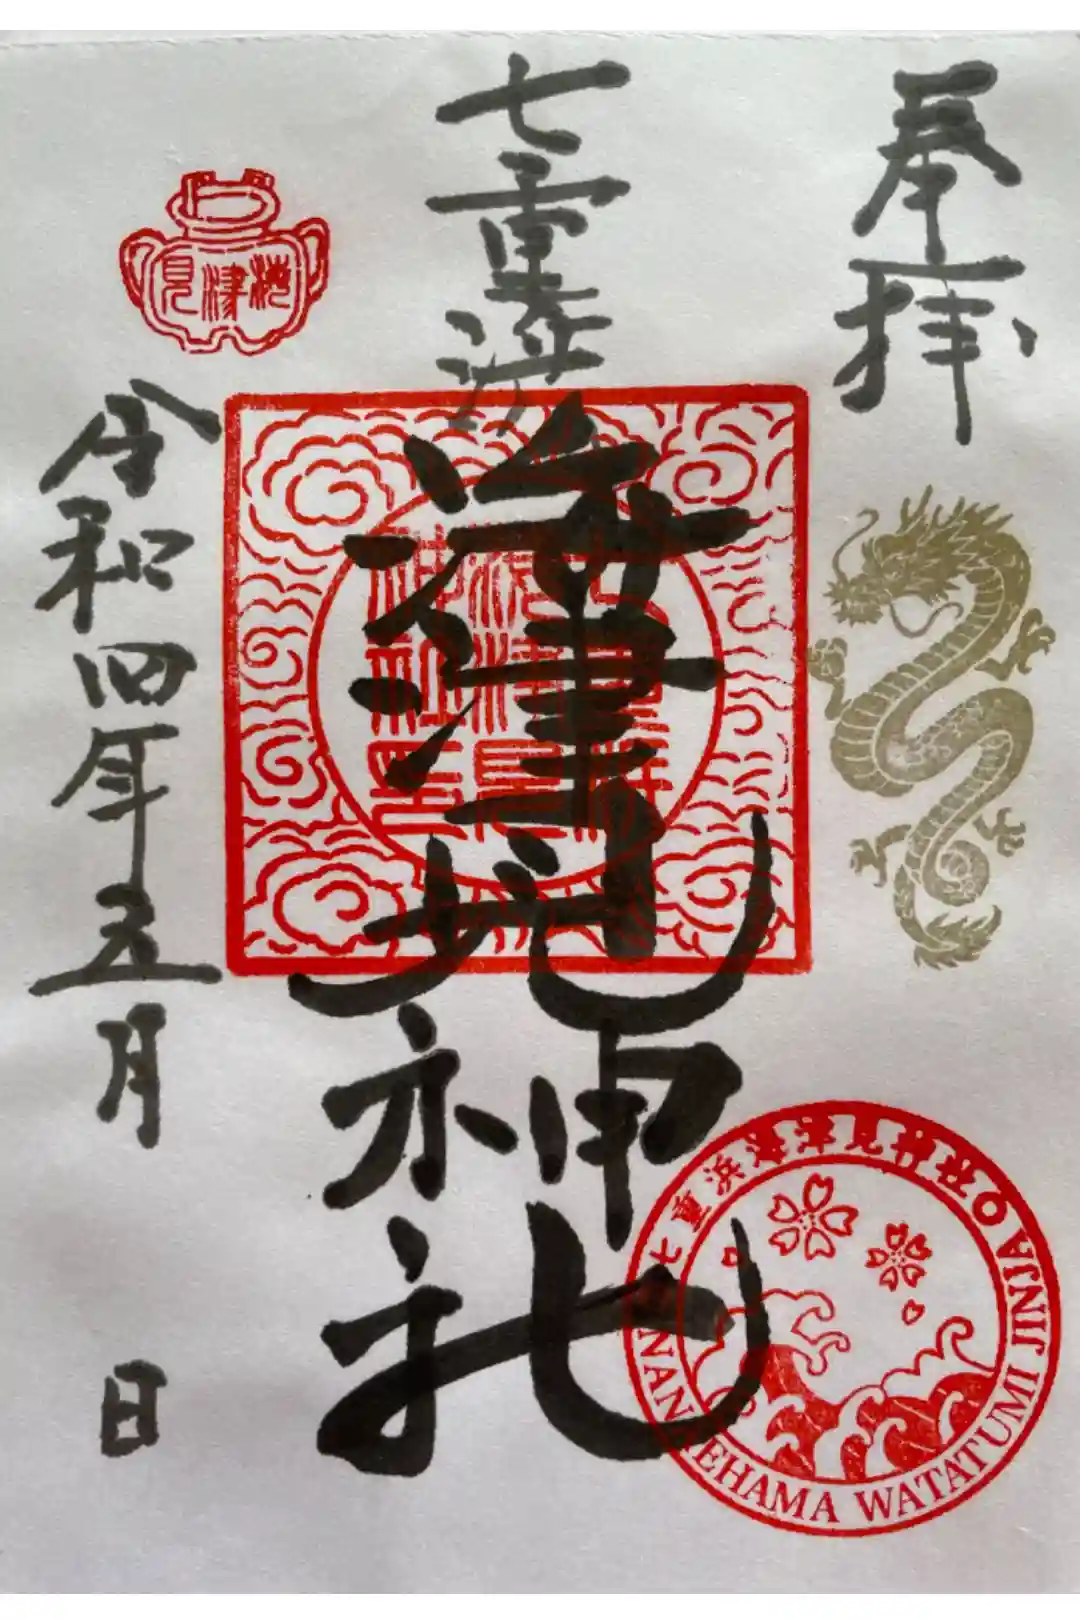 奉拝
七重浜
海津見神社
令和四年五月
日
海津見
七重浜海津見神社
NANAEHAMA WATATUMI JINJA